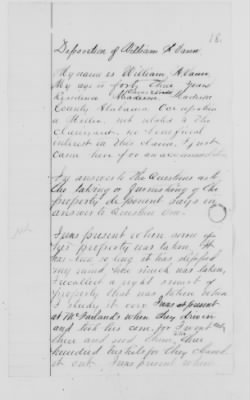 18.
Deposition of William H. Vann
My name is William H. Vann
My age is forty three years
Residence Madison
County Alabama Occupation
a not related to the
Claimant no beneficial
interest in this claim. I just
came here for an accommodation
In answer to the Questions as to
the taking or furnishing of the
property deponent says in
answer to Question One.
I was present when some of
his property was taken, it
has been so long it has slipped
my mind, how much was taken,
I recollect a right smart of
property that was taken when
I study it over I was at present
at McFarland's when they drove in
and took his corn, for I went out
there and said there, three
hundred bushels for they cleaned
it out. I was present when